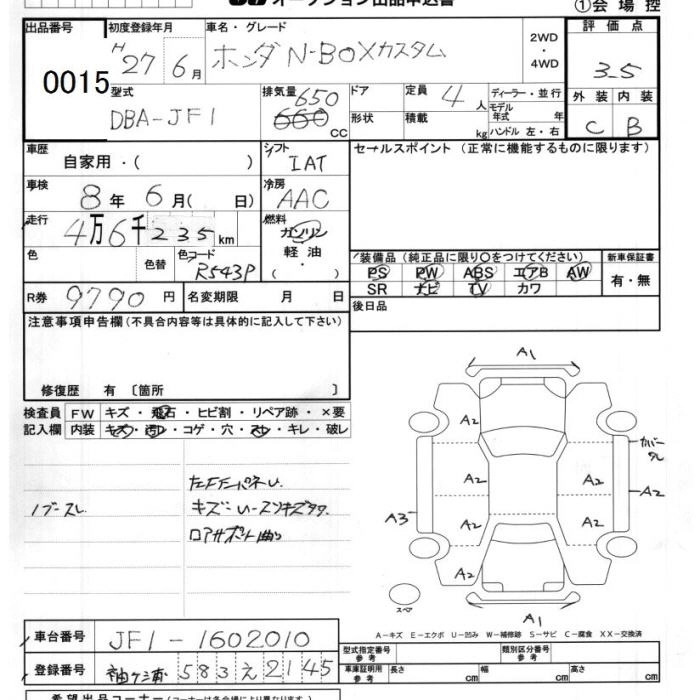 オークション出品申込書
①会場控
出品番号 初度登録年月 車名・グレード 評価点
0015 H 27年 6月 ホンダ N-BOXカスタム 2WD・4WD 3.5
型式 排気量 ドア 定員 ディーラー・並行 外装 内装
DBA-JF1 650 660 cc 4人 モデル年式 年 C B
形状 積載 kg ハンドル 左・右
車歴 シフト セールスポイント (正常に機能するものに限ります)
自家用・( ) IAT
車検 冷房
8年 6月( 日) AAC
走行 燃料
4万6千235km ガソリン
色 色替 色コード 軽油 装備品 (純正品に限り○をつけてください) 新車保証書
R543P (・) PS PW ABS エアB AW 有・無
SR ナビ TV カワ
R券 9790円 名変期限 月 日 後日品
注意事項申告欄 (不具合内容等は具体的に記入して下さい)
修復歴 有 〔箇所 〕
検査員 FW キズ・飛石・ヒビ割・リペア跡・×要
記入欄 内装 キズ・汚レ・コゲ・穴・スレ・キレ・破レ
ノブスレ
キズ
A1
A2
A2 A2
A2 A2
A2
A3
A2
カバースレ
A1
スペア
A-キズ E-エクボ U-凹み W-補修跡 S-サビ C-腐食 XX-交換済
車台番号 JF1-1602010 型式指定番号 参考 類別区分番号 参考
登録番号 袖ケ浦 583 え 2145 車庫証明用 参考 長さ cm 幅 cm 高さ cm
希望出品コーナー